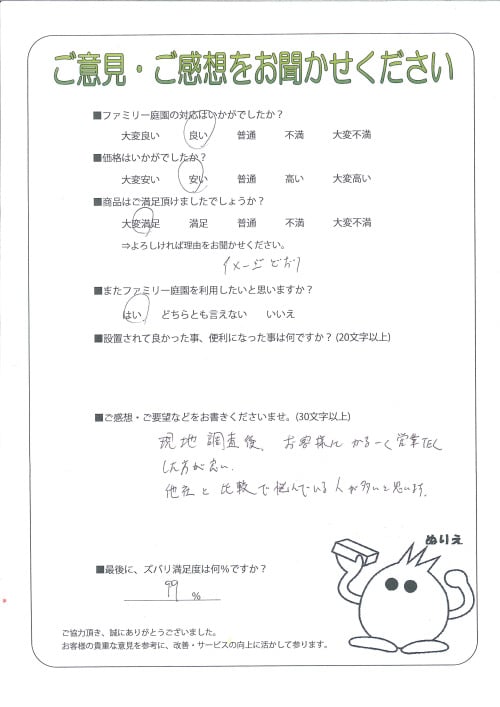 ご意見・ご感想をお聞かせください
■ファミリー庭園の対応はいかがでしたか？
大変良い 良い 普通 不満 大変不満
■価格はいかがでしたか？
大変安い 安い 普通 高い 大変高い
■商品はご満足頂けましたでしょうか？
大変満足 満足 普通 不満 大変不満
⇒よろしければ理由をお聞かせください。
イメージどおり
■またファミリー庭園を利用したいと思いますか？
はい どちらとも言えない いいえ
■設置されて良かった事、便利になった事は何ですか？(20文字以上)
■ご感想・ご要望などをお書きくださいませ。(30文字以上)
現地調査後、お客様に かるーく営業TEL
した方が良い。
他社と比較で悩んでいる人が多いと思います。
ぬりえ
■最後に、ズバリ満足度は何％ですか？
99 %
ご協力頂き、誠にありがとうございました。
お客様の貴重な意見を参考に、改善・サービスの向上に活かして参ります。